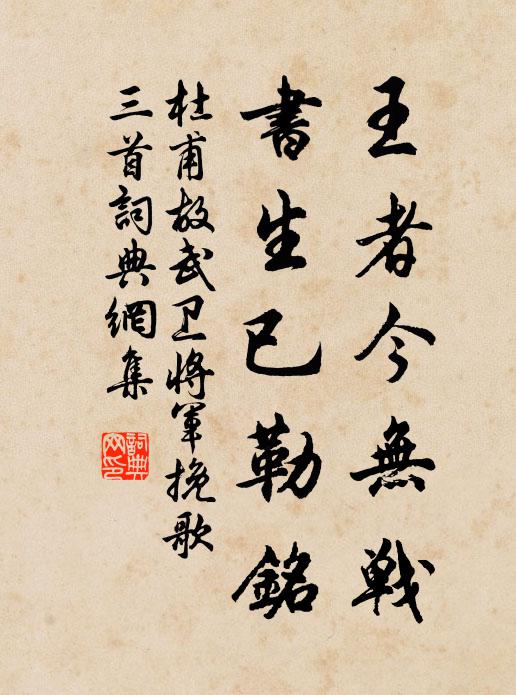 王者今無戦
書生已勒銘
杜甫故武卫将军挽歌
三首詞典網集
詞典
网印